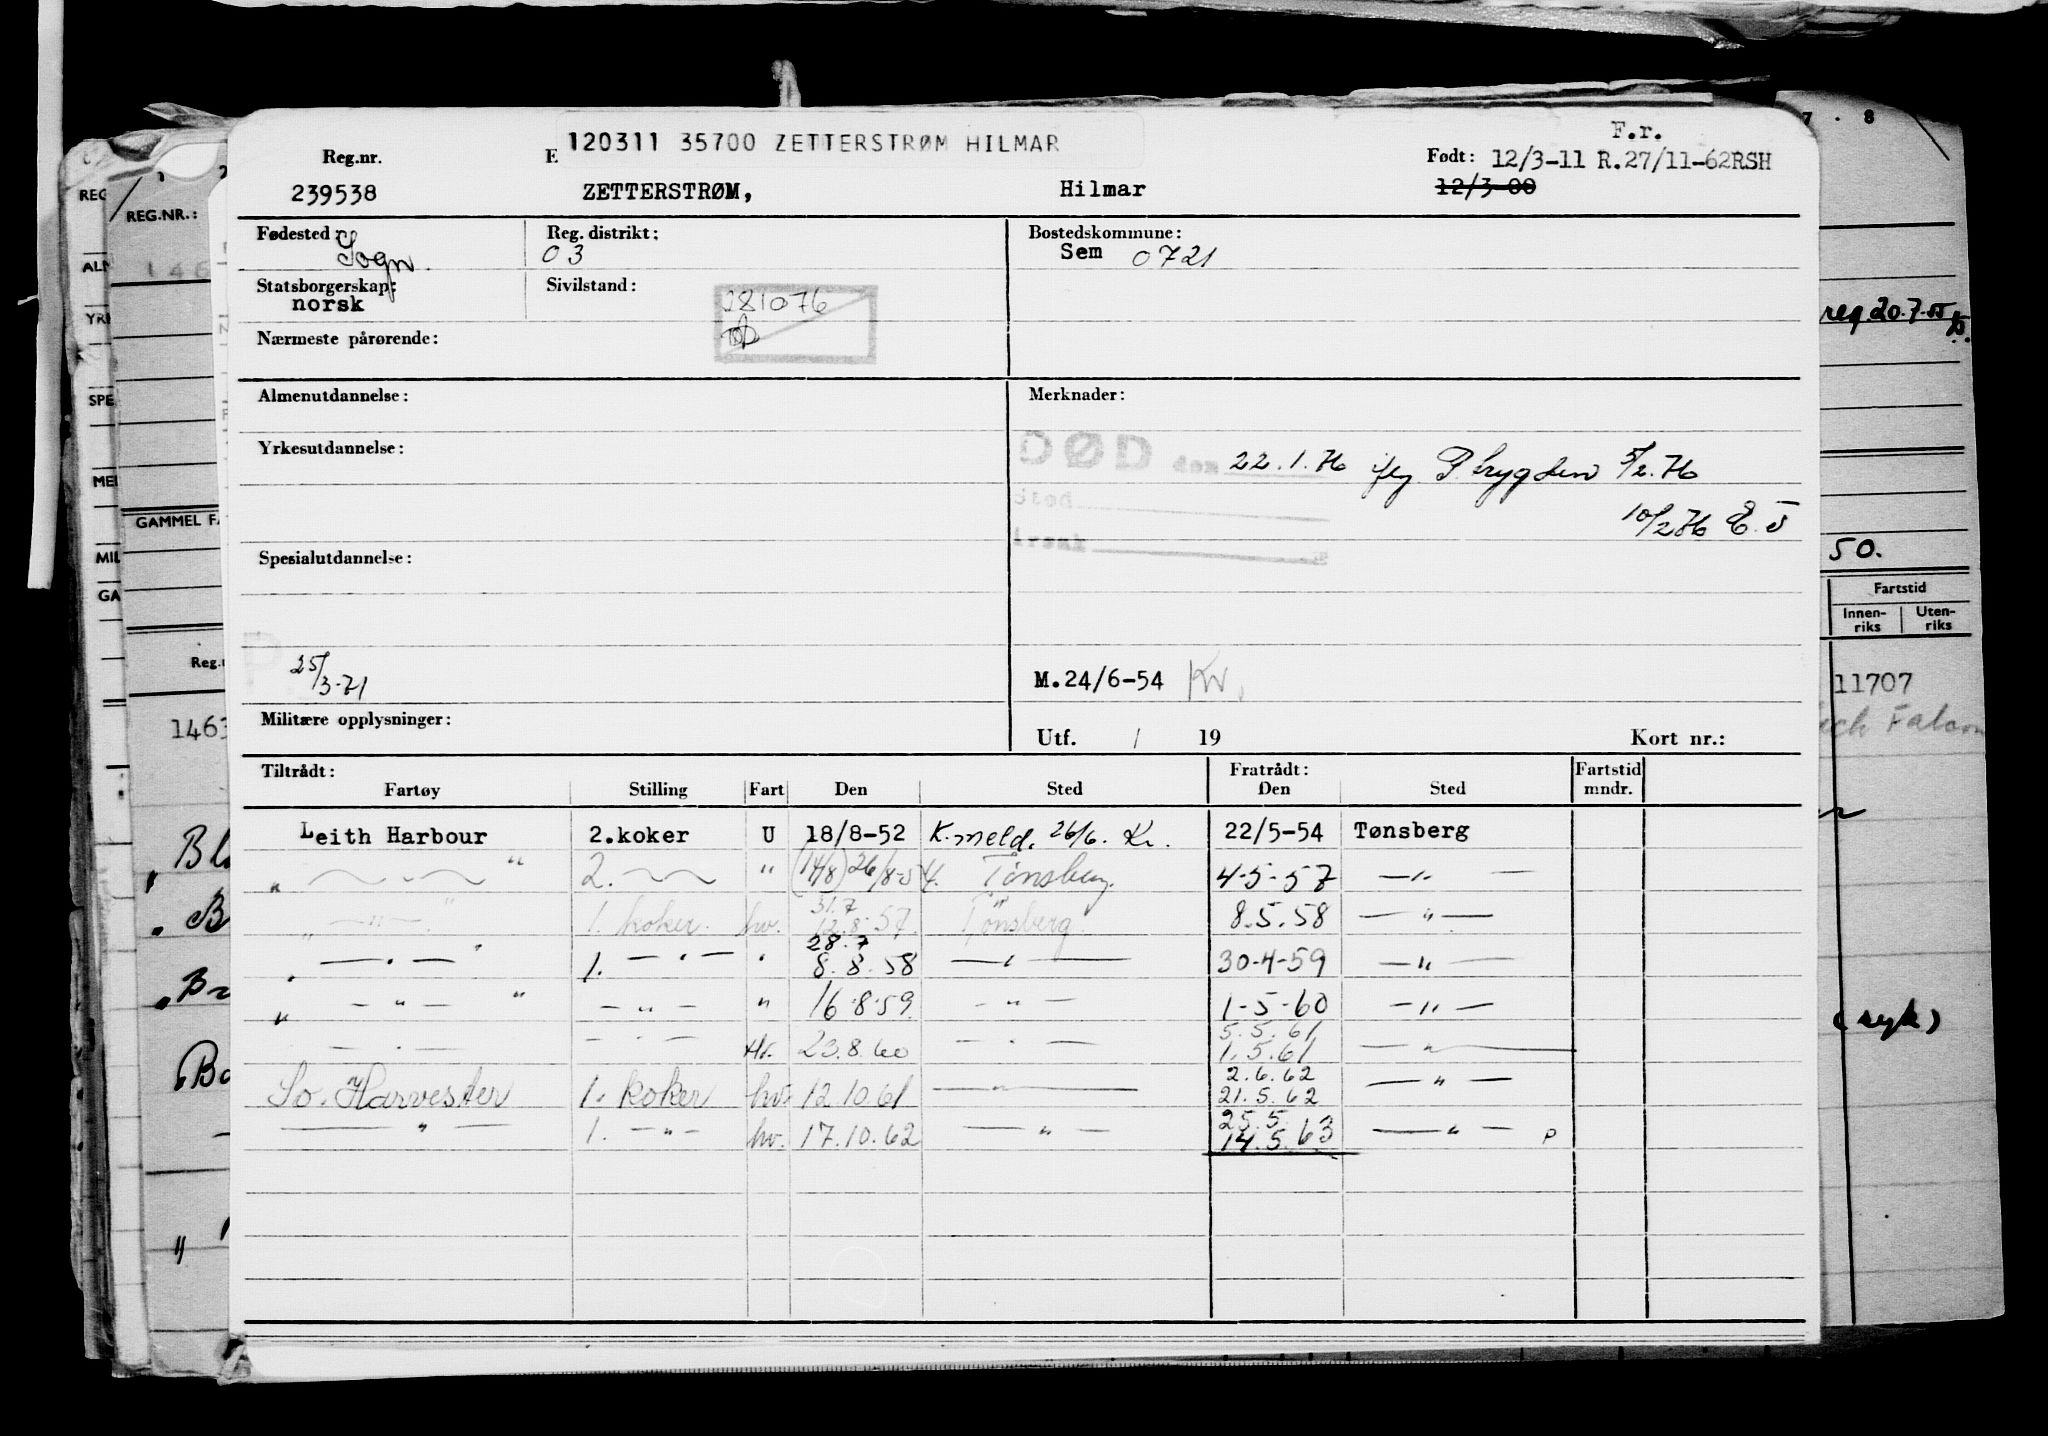 120311 35700 ZETTERSTRØM HILMAR
F.r.
Reg.nr. E Født: 12/3-11 R.27/11-62RSH
239538 ZETTERSTRØM, Hilmar 12/3-00
Fødested: Sogn. Reg. distrikt: 03 Bostedskommune: Sem 0721
Statsborgerskap: norsk Sivilstand: 281076
Nærmeste pårørende:
Almenutdannelse: Merknader:
Yrkesutdannelse: DØD den 22.1.76 ifg. P.trygden 5/2.76
Sted
10/2 76 E.J
Årsak
Spesialutdannelse:
25/3-71 M.24/6-54 Kr.
Militære opplysninger: Utf. / 19 Kort nr.:
Tiltrådt: Fratrådt: Fartstid
Fartøy Stilling Fart Den Sted Den Sted mndr.
Leith Harbour 2.koker U 18/8-52 K.meld. 26/6. Kr. 22/5-54 Tønsberg
„ — " 2. — " (14/8) 26/8-54. Tønsberg. 4-5-57 — " —
31.7
„ — " — " 1. koker. hv. 12.8.57. Tønsberg. 8.5.58 — " —
28.7
„ — " — " 1. — " — " 8.8.58 — " — 30-4-59 — " —
„ — " — " — " — " 16-8-59. — " — 1-5-60 — " —
5.5.61
— " — — " — Hv. 23.8.60 — " — 1.5.61 — " —
2.6.62
So. Harvester 1. koker hv. 12.10.61 — " — 21.5.62 — " —
25.5.
— " — 1. — " — hv. 17.10.62 — " — 14.5.63 — " — P
REG
ALM
YRK
SPE
MIL
GA
REG.NR.:
146
GAMMEL FA
Reg.
1463
Bl
B
Br
Ba
7 . 8
reg.20.7.55
50.
Fartstid
Innen-riks Uten-riks
11707
(syk)